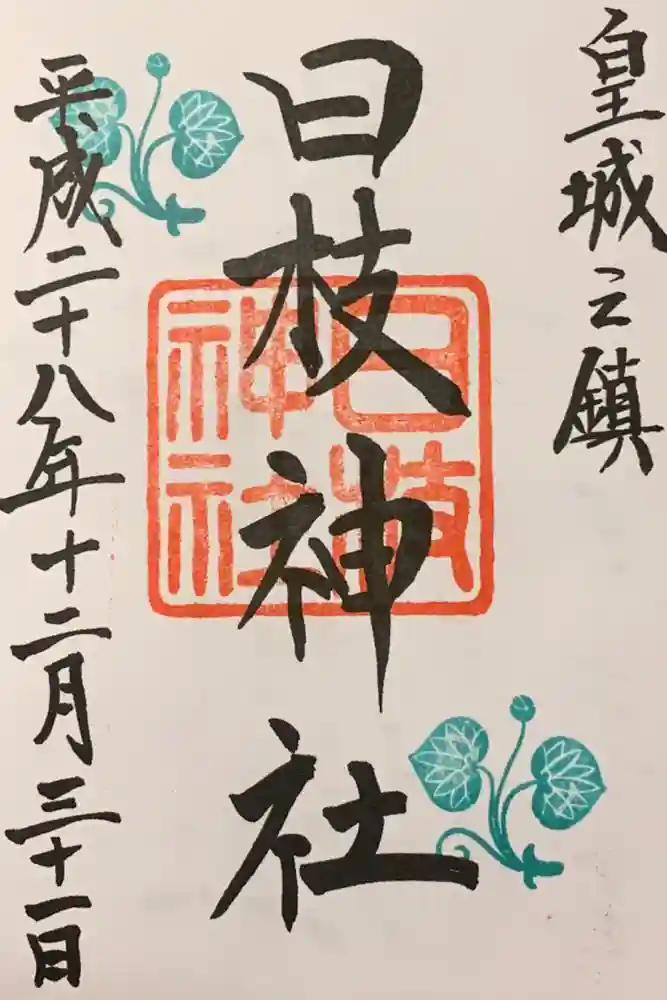 皇城之鎮
日枝神社
日枝
神社
平成二十八年十二月三十一日